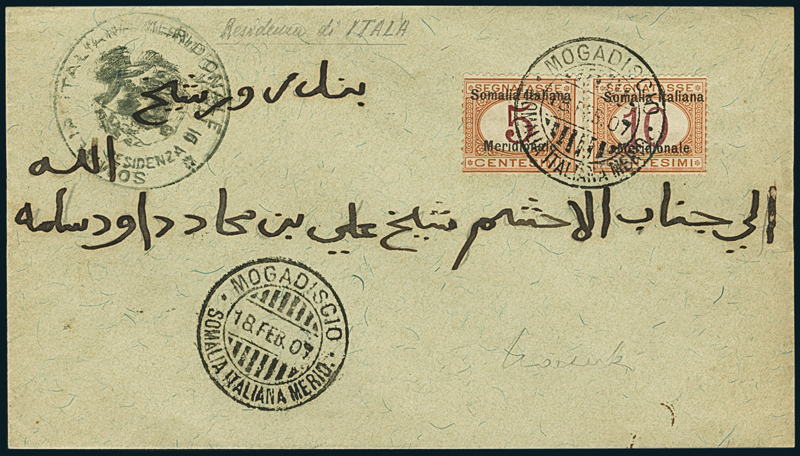 Residenza di ITALA
SOMALIA ITALIANA MERIDIONALE
RESIDENZA DI
SEGNATASSE SEGNATASSE
Somalia Italiana Somalia Italiana
5 10
Meridionale Meridionale
CENTESIMI CENTESIMI
MOGADISCIO
18 FEB. 07
SOMALIA ITALIANA MERID.
بندر ورشيخ
الي جناب الاحشم شيخ علي بن محادد داود سلمه
الله
MOGADISCIO
18. FEB. 07
SOMALIA ITALIANA MERID.